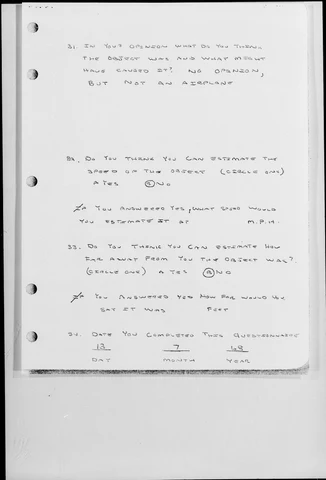 31. IN YOUR OPINION WHAT DO YOU THINK
THE OBJECT WAS AND WHAT MIGHT
HAVE CAUSED IT? NO OPINION,
BUT NOT AN AIRPLANE
32. DO YOU THINK YOU CAN ESTIMATE THE
SPEED OF THE OBJECT (CIRCLE ONE)
A YES B NO
IF YOU ANSWERED YES, WHAT SPEED WOULD
YOU ESTIMATE IT AT M.P.H.
33. DO YOU THINK YOU CAN ESTIMATE HOW
FAR AWAY FROM YOU THE OBJECT WAS?
(CIRCLE ONE) A YES B NO
IF YOU ANSWERED YES HOW FAR WOULD YOU
SAY IT WAS FEET
34. DATE YOU COMPLETED THIS QUESTIONNAIRE
13 7 68
DAY MONTH YEAR